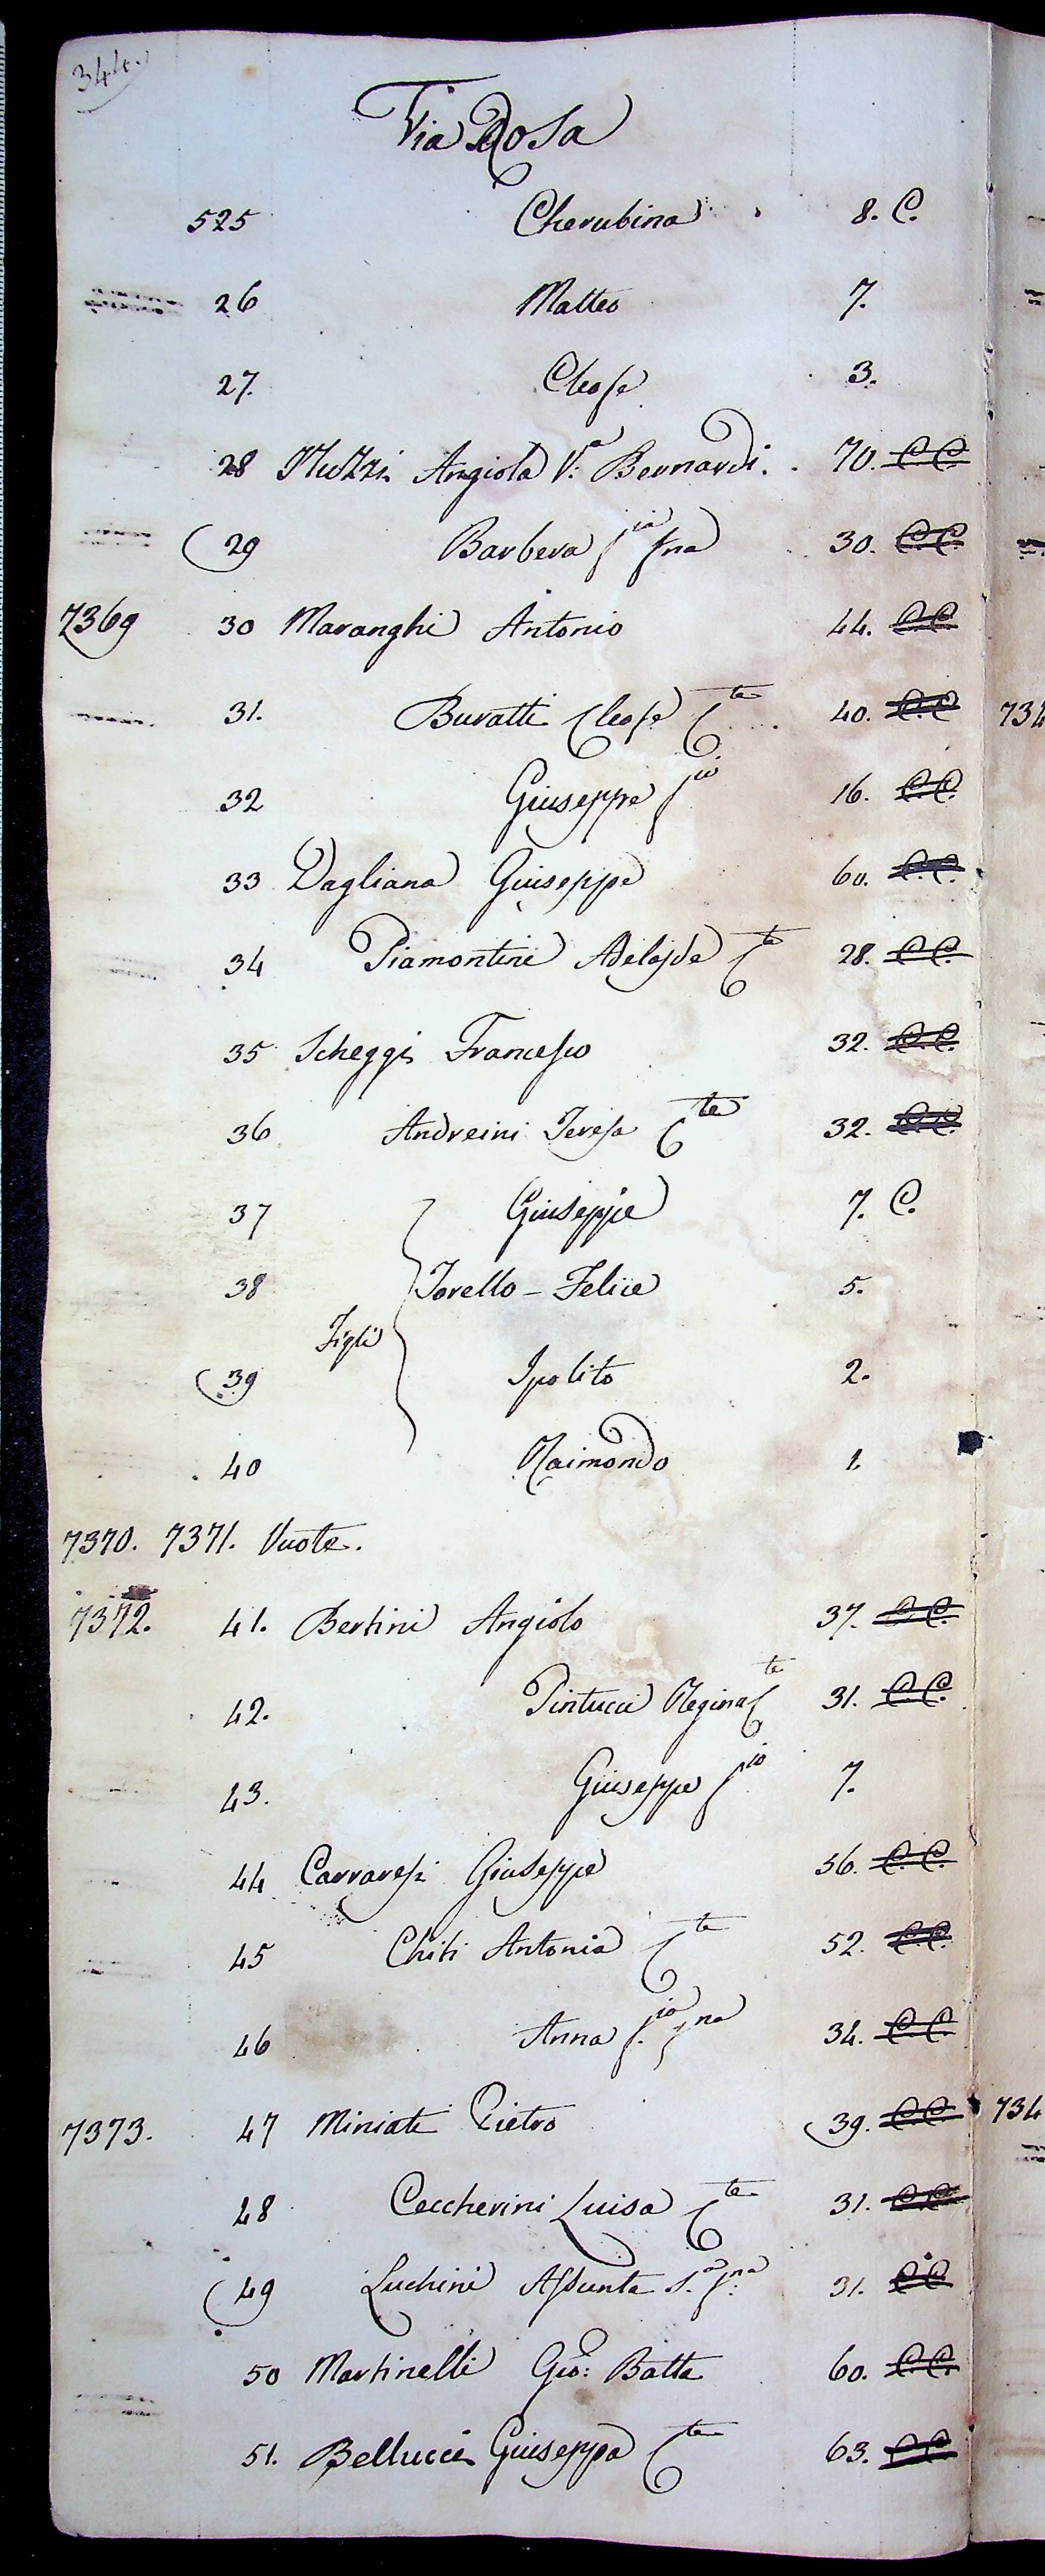 344.
Via Rosa
525 Cherubina 8. C.
26 Matteo 7.
27. Cleofe 3.
28 Nuzzi Angiola V.a Bernardi. 70. C C
29 Barbera fia fna 30. C C.
7369 30 Maranghi Antonio 44. C C
31. Buratti Cleofe Cte 40. C. C
32 Giuseppe fio 16. C. C.
33 Dagliana Giuseppe 60. C. C.
34 Piamontini Adelajde Cte 28. C C.
35 Scheggi Francesco 32. C. C.
36 Andreini Teresa Cte 32. C. C.
37 Giuseppe 7. C.
38 Torello - Felice 5.
Figli
39 Ipolito 2.
40 Raimondo 1.
7370. 7371. Vuote.
7372. 41. Bertini Angiolo 37. C C.
42. Pintucci Regina Cte 31. C. C.
43. Giuseppe fio 7.
44 Carraresi Giuseppe 56. C. C.
45 Chiti Antonia Cte 52. C. C.
46 Anna f.ia fna 34. C. C.
7373. 47 Miniati Pietro 39. C. C.
48 Ceccherini Luisa Cte 31. C. C.
49 Luchini Assunta S.a f.na 31. C C
50 Martinelli Gio: Batta 60. C C.
51. Bellucci Giuseppa Cte 63. C C.